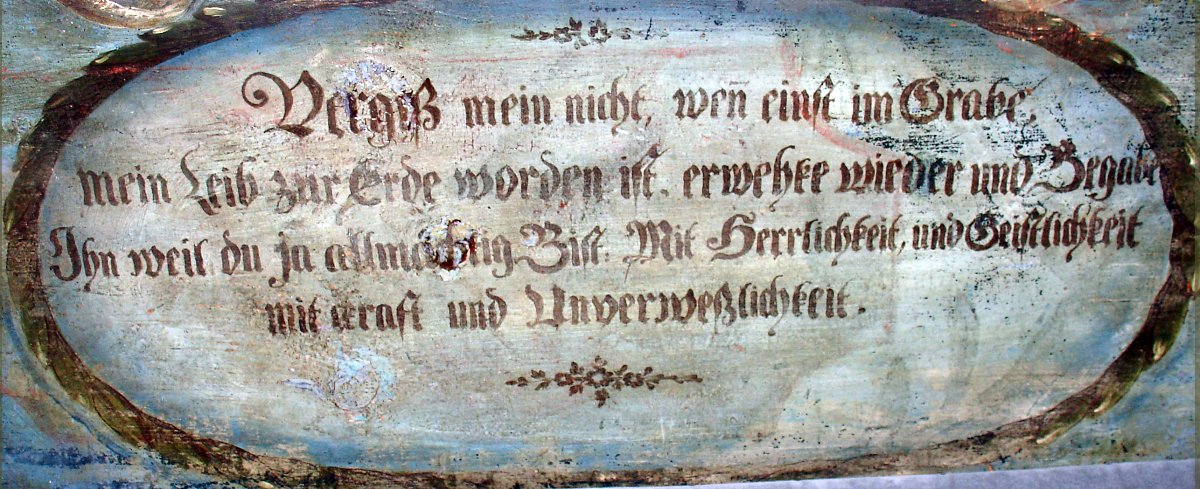 Vergiß mein nicht, wen̄ einst im Grabe,
mein Leib zur Erde worden ist. erwehke wieder und Begabe
Ihn weil du ja allmächtig Bist. Mit Herrlichkeit, und Geistlichkeit
mit kraft und Unverweßlichkeit.